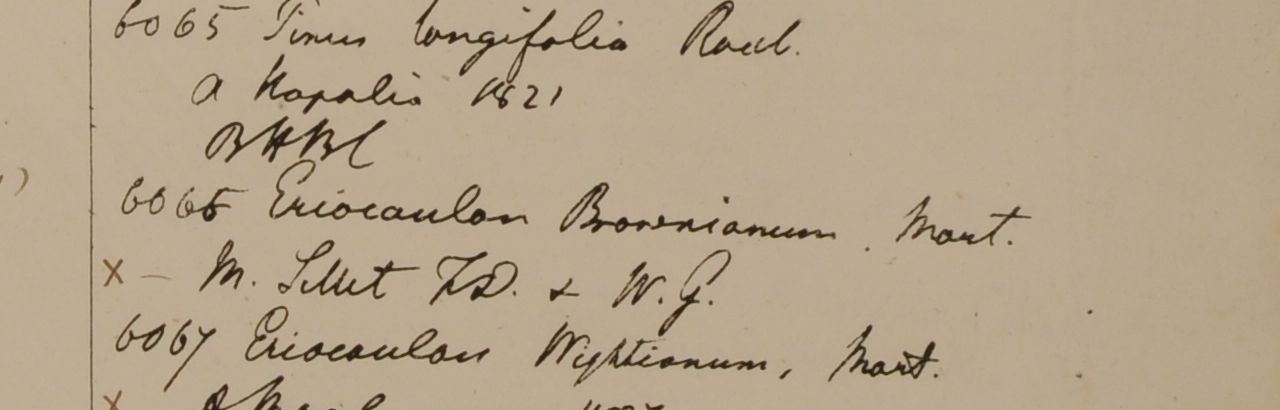 6065 Pinus longifolia Roxb.
a Napalia 1821
B HBC
6066 Eriocaulon Brownianum. Mart.
X — M. Sillet & W. G.
6067 Eriocaulon Wightianum, Mart.
X